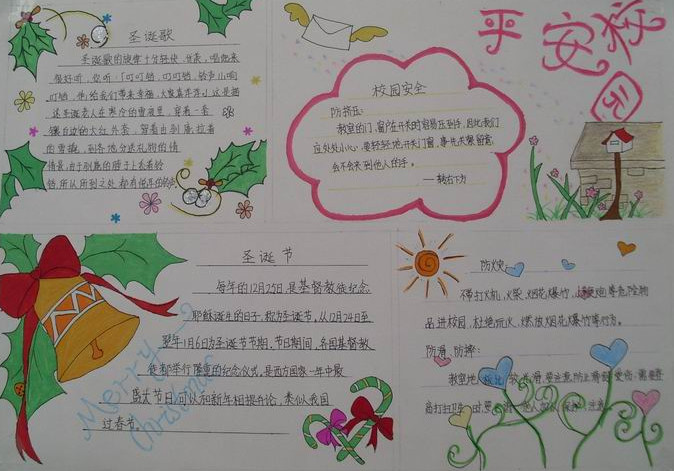 圣诞歌
圣诞歌的旋律十分轻快、分亲,唱起来
很好听,你听:「叮叮铛,叮叮铛,铃声儿响
叮铛,他给我们带来幸福,大家喜洋洋」这是描
述圣诞老人在寒冷的雪夜里,穿着一套
镶白边的大红外套,驾着由驯鹿拉着
的雪撬,到各地分送礼物的情
情景,由于驯鹿的脖子上系着铃
铛,所以所到之处都有
平安校园
校园安全
防挤压:
教室的门、窗户在开关时容易压到手,因此我们
应处处小心,要轻轻地开关门窗,事先先留意
会不会夹到他人的手。
——转右下方
圣诞节
每年的12月25日,是基督教徒纪念
耶稣诞生的日子,称为圣诞节。从12月24日至
翌年1月6日为圣诞节节期。节日期间,各国基督教
徒都举行隆重的纪念仪式。是西方国家一年中最
盛大节日,可以和新年相提并论,类似我国
过春节。
Merry
Christmas
防火灾:
不带打火机、火柴、烟花爆竹、等危险物
品进校园,杜绝玩火、燃放烟花爆竹等行为。
防滑、防摔:
教室地板比较光滑,要注意防止滑倒受伤;需要登
高打扫卫生